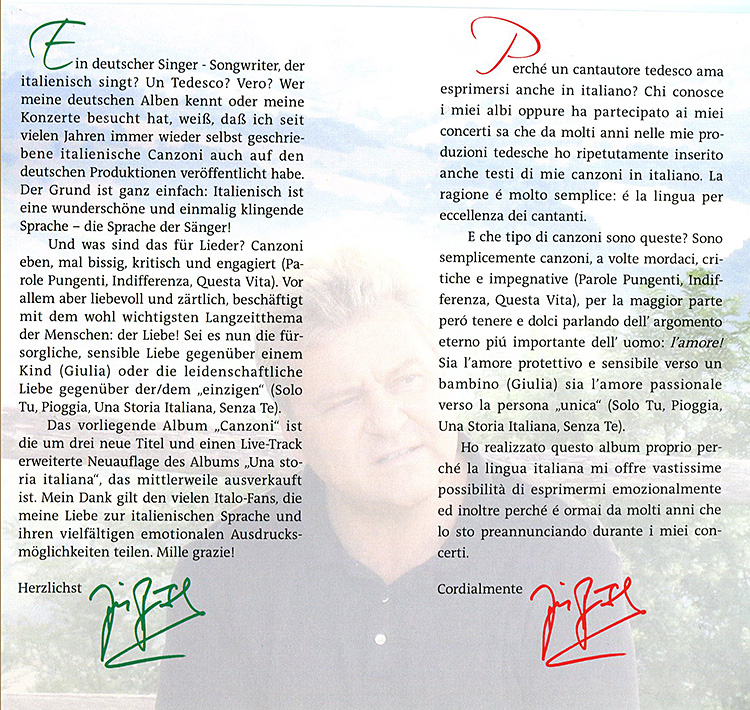 Ein deutscher Singer - Songwriter, der
italienisch singt? Un Tedesco? Vero? Wer
meine deutschen Alben kennt oder meine
Konzerte besucht hat, weiß, daß ich seit
vielen Jahren immer wieder selbst geschrie-
bene italienische Canzoni auch auf den
deutschen Produktionen veröffentlicht habe.
Der Grund ist ganz einfach: Italienisch ist
eine wunderschöne und einmalig klingende
Sprache – die Sprache der Sänger!
Und was sind das für Lieder? Canzoni
eben, mal bissig, kritisch und engagiert (Pa-
role Pungenti, Indifferenza, Questa Vita). Vor
allem aber liebevoll und zärtlich, beschäftigt
mit dem wohl wichtigsten Langzeitthema
der Menschen: der Liebe! Sei es nun die für-
sorgliche, sensible Liebe gegenüber einem
Kind (Giulia) oder die leidenschaftliche
Liebe gegenüber der/dem „einzigen“ (Solo
Tu, Pioggia, Una Storia Italiana, Senza Te).
Das vorliegende Album „Canzoni“ ist
die um drei neue Titel und einen Live-Track
erweiterte Neuauflage des Albums „Una sto-
ria italiana“, das mittlerweile ausverkauft
ist. Mein Dank gilt den vielen Italo-Fans, die
meine Liebe zur italienischen Sprache und
ihren vielfältigen emotionalen Ausdrucks-
möglichkeiten teilen. Mille grazie!
Herzlichst
Perché un cantautore tedesco ama
esprimersi anche in italiano? Chi conosce
i miei albi oppure ha partecipato ai miei
concerti sa che da molti anni nelle mie pro-
duzioni tedesche ho ripetutamente inserito
anche testi di mie canzoni in italiano. La
ragione é molto semplice: é la lingua per
eccellenza dei cantanti.
E che tipo di canzoni sono queste? Sono
semplicemente canzoni, a volte mordaci, cri-
tiche e impegnative (Parole Pungenti, Indif-
ferenza, Questa Vita), per la maggior parte
peró tenere e dolci parlando dell’ argomento
eterno piú importante dell’ uomo: l’amore!
Sia l’amore protettivo e sensibile verso un
bambino (Giulia) sia l’amore passionale
verso la persona „unica“ (Solo Tu, Pioggia,
Una Storia Italiana, Senza Te).
Ho realizzato questo album proprio per-
ché la lingua italiana mi offre vastissime
possibilità di esprimermi emozionalmente
ed inoltre perché é ormai da molti anni che
lo sto preannunciando durante i miei con-
certi.
Cordialmente